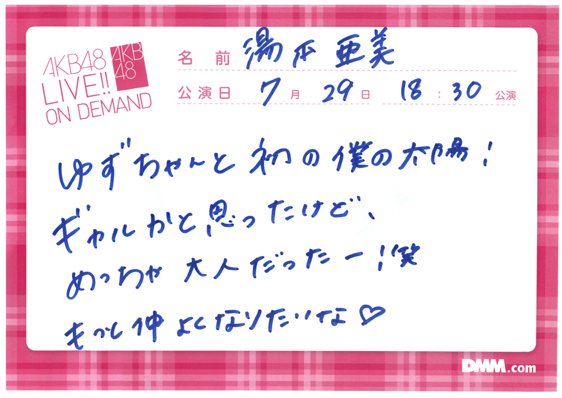 AKB48
LIVE!!
ON DEMAND
AKB
48
名前 湯本亜美
公演日 7月29日 18:30公演
ゆずちゃんと初の僕の太陽!
ギャルかと思ったけど、
めっちゃ大人だったー!笑
もっと仲よくなりたいな♡
DMM.com